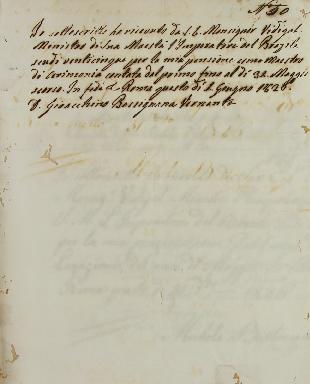 N. 30
Io sottoscritto ho ricevuto da S. E. Monsigner Vidigal
Ministro di Sua Maestà l'Imperatore del Brasile
scudi venticinque per la mia pensione come Maestro
di Cerimonia contata dal primo fino al dì 31. Maggio
scorso. In fede Roma questo dì Giugno 1826.
D. Gioacchino